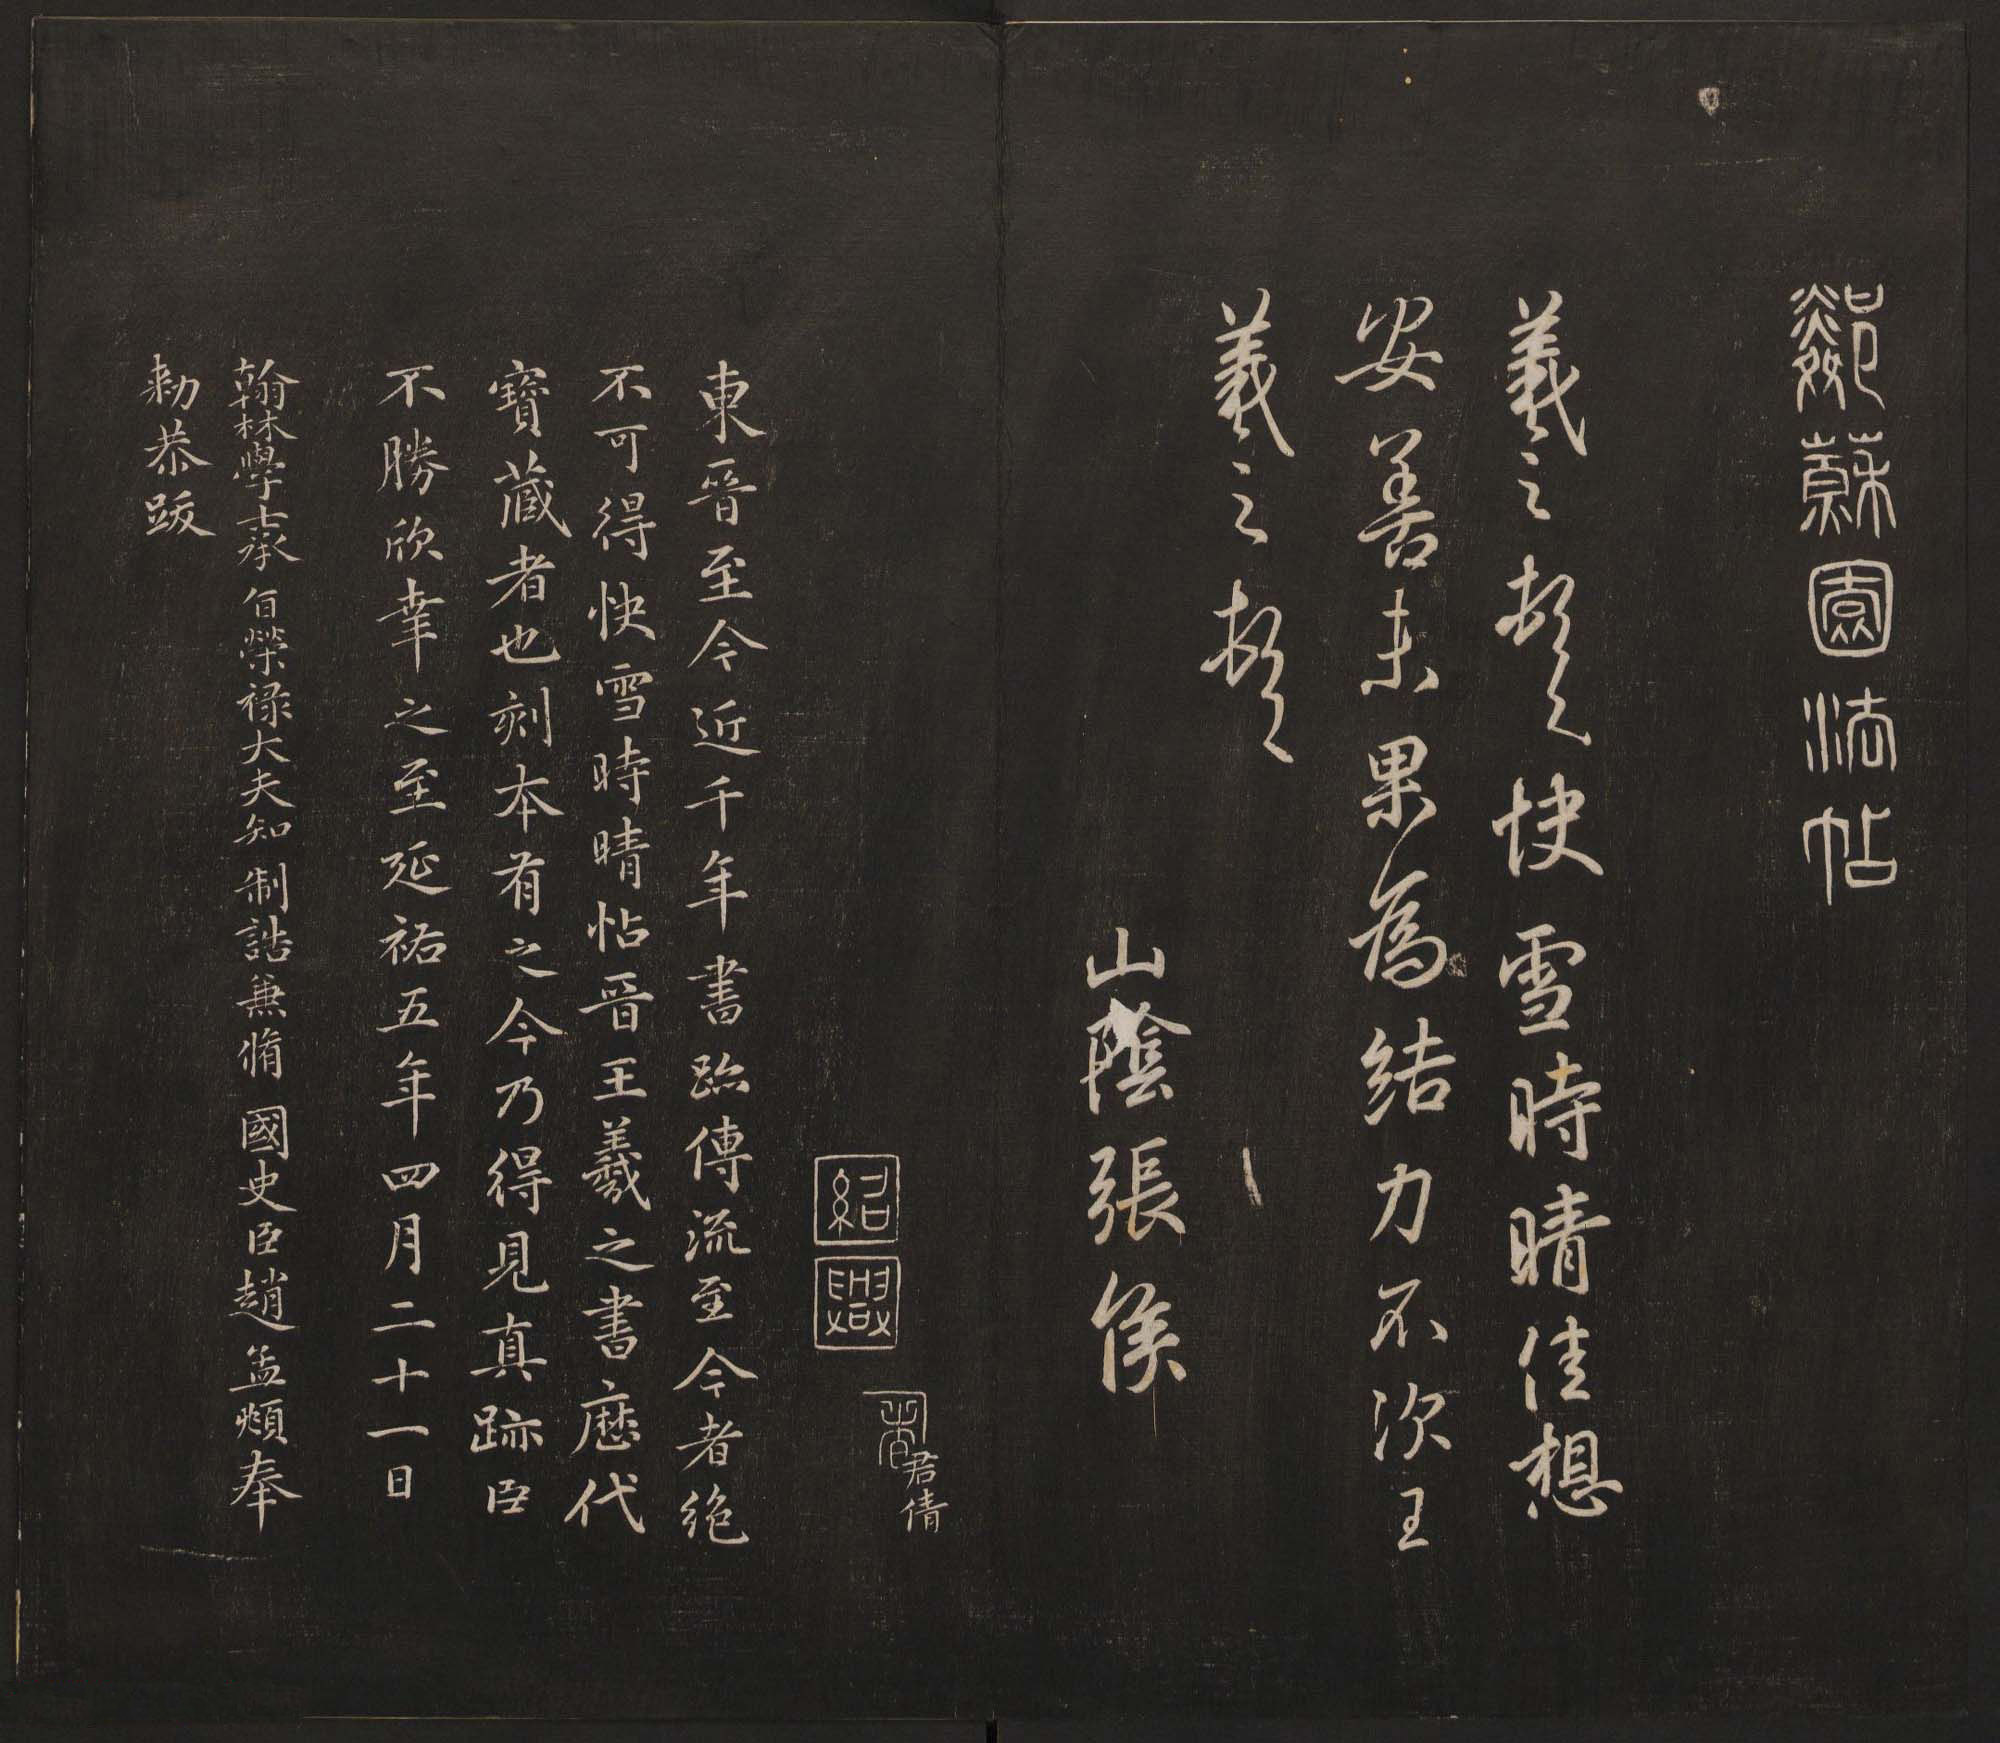 鄰蘇園法帖
羲之頓首快雪時晴佳想
安善未果為結力不次王
羲之頓首
山陰張侯
君倩
紹興
東晉至今近千年書跡傳流至今者絕
不可得快雪時晴帖晉王羲之書歷代
寶藏者也刻本有之今乃得見真跡臣
不勝欣幸之至延祐五年四月二十一日
翰林學士承旨榮祿大夫知制誥兼脩國史臣趙孟頫奉
勑恭跋